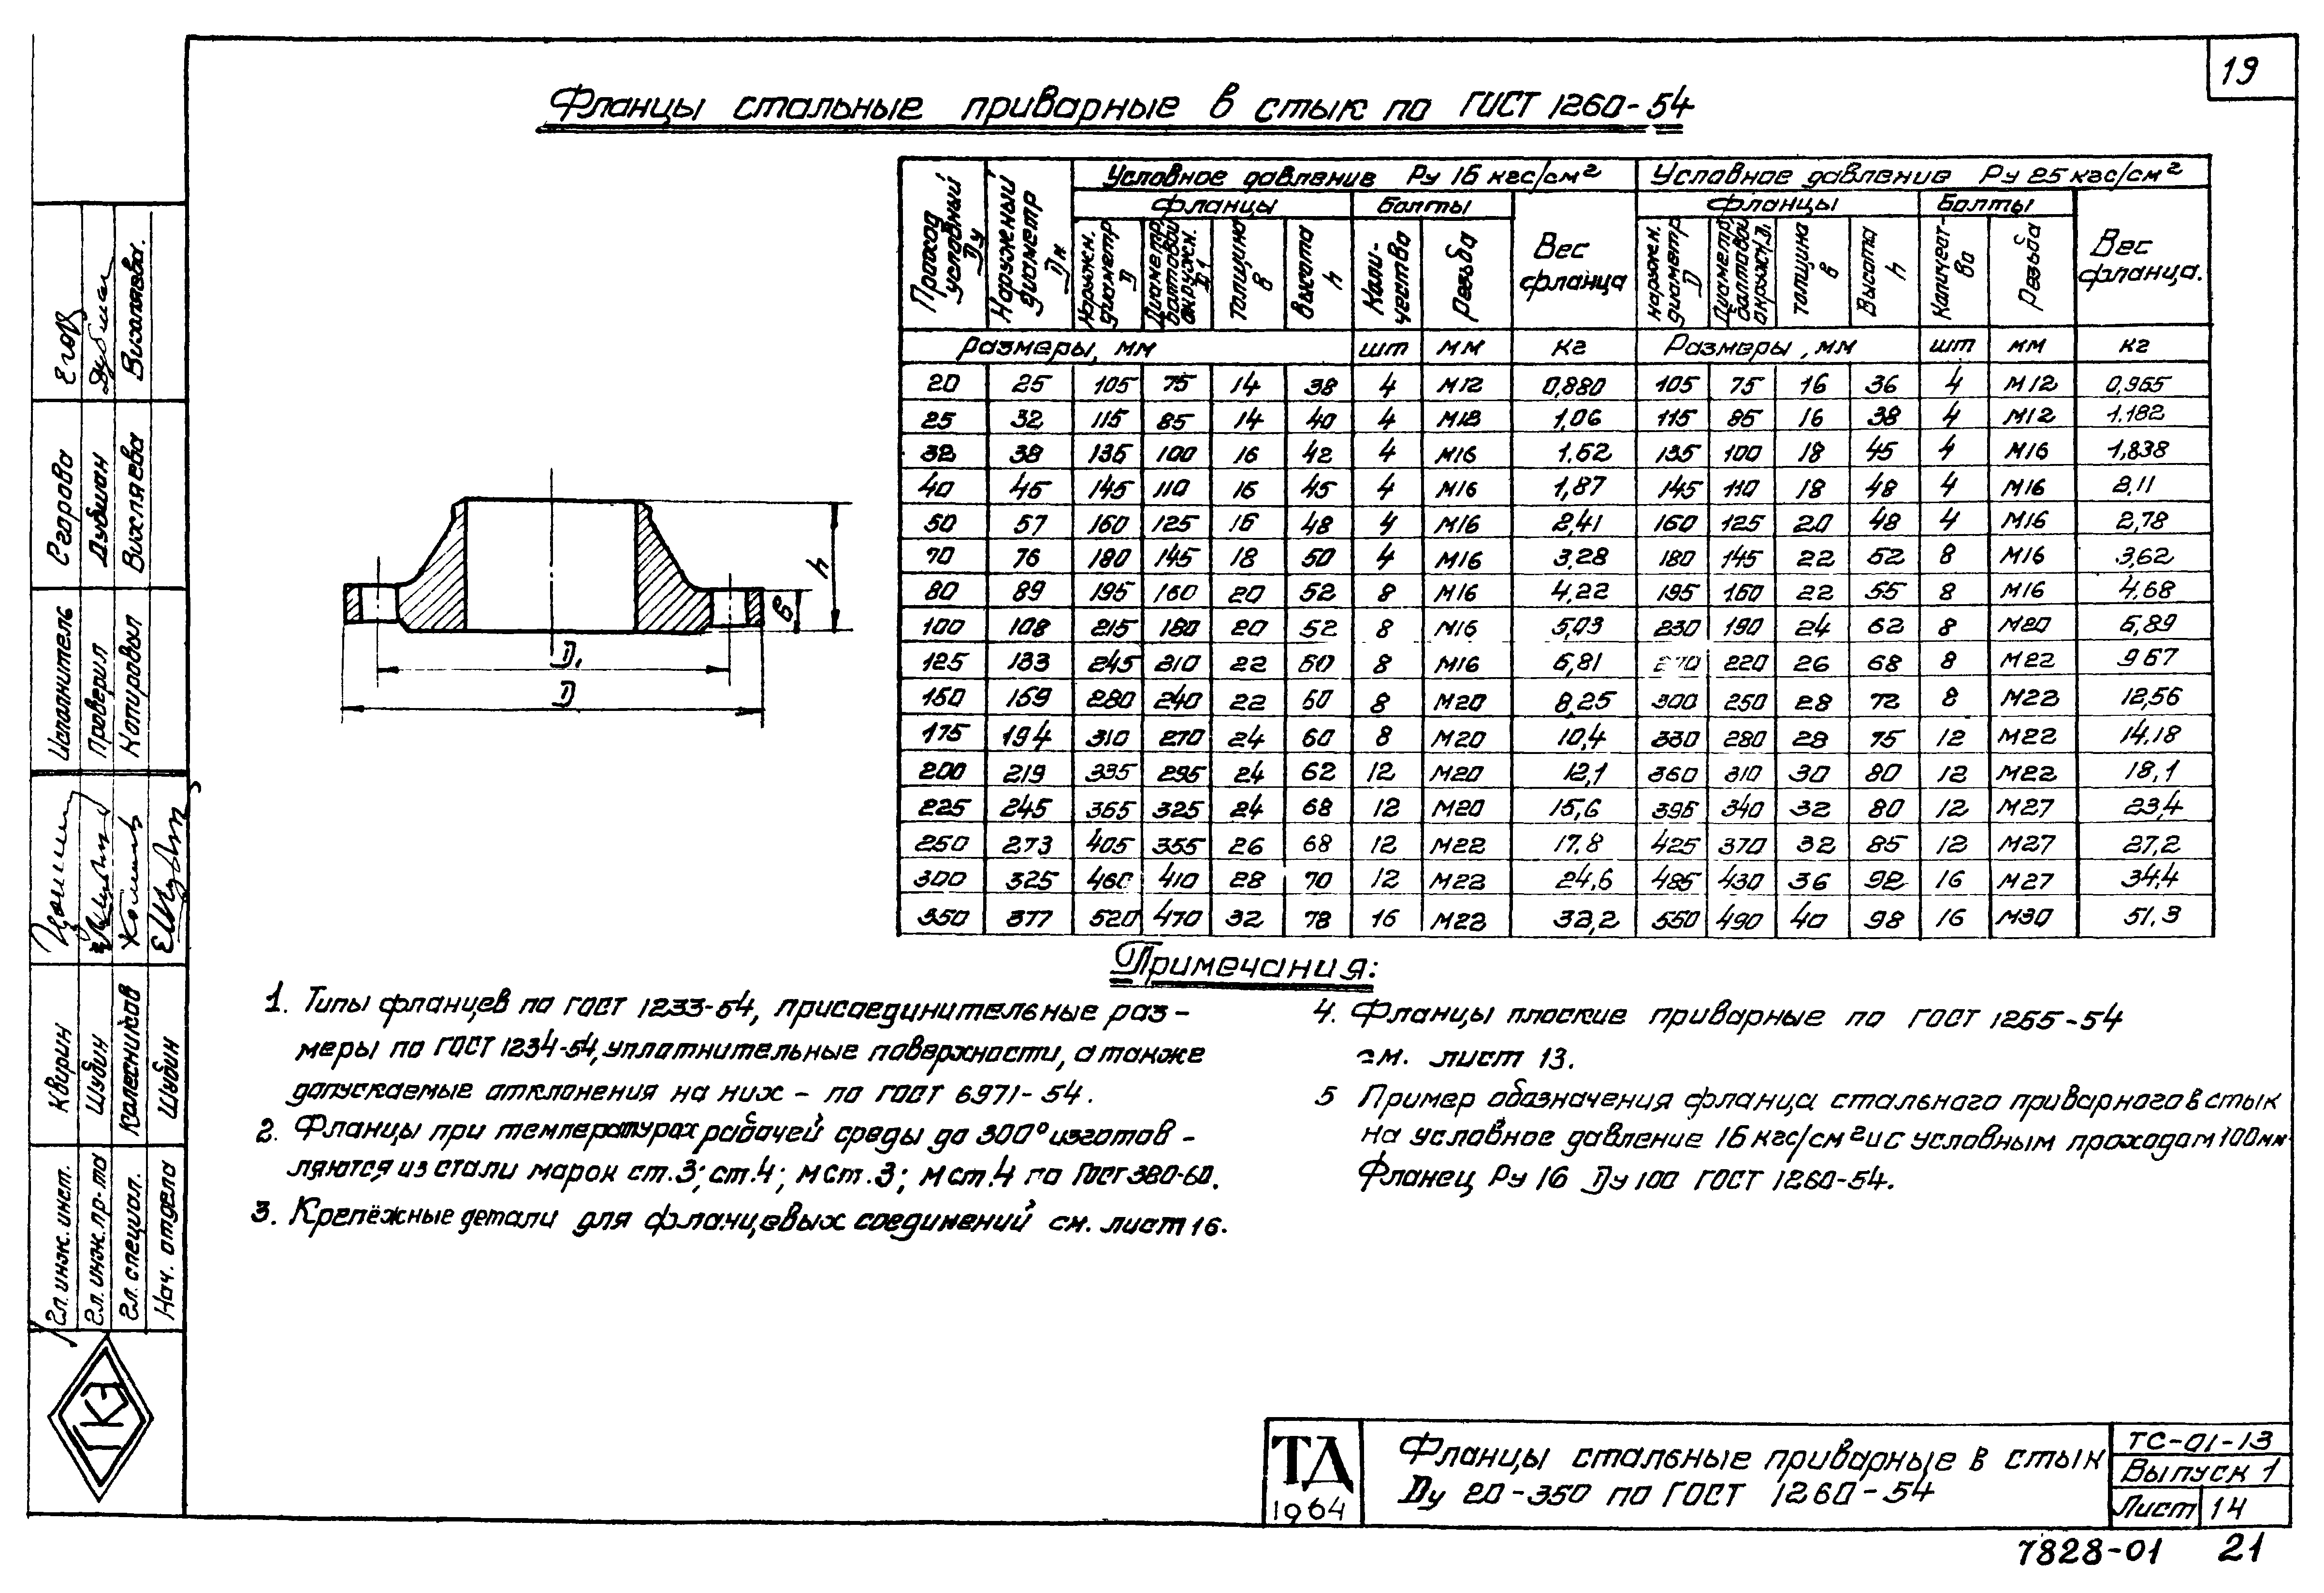 19
Фланцы стальные приварные в стык по ГОСТ 1260-54
Проход условный Ду
Наружный диаметр Дн
Условное давление Ру 16 кгс/см²
Условное давление Ру 25 кгс/см²
Фланцы Болты Вес фланца
Фланцы Болты Вес фланца.
Наружн. диаметр Д
Диаметр болтовой окружн. Д1
Толщина в
Высота h
Количество
Резьба
Наружн. диаметр Д
Диаметр болтовой окружн. Д1
Толщина в
Высота h
Количест-во
Резьба
Размеры, мм шт мм кг Размеры, мм шт мм кг
20 25 105 75 14 38 4 М12 0,880 105 75 16 36 4 М12 0,965
25 32 115 85 14 40 4 М12 1,06 115 85 16 38 4 М12 1.182
32 38 135 100 16 42 4 М16 1.62 135 100 18 45 4 М16 1,838
40 45 145 110 16 45 4 М16 1,87 145 110 18 48 4 М16 2,11
50 57 160 125 16 48 4 М16 2,41 160 125 20 48 4 М16 2,78
70 76 180 145 18 50 4 М16 3,28 180 145 22 52 8 М16 3,62
80 89 195 160 20 52 8 М16 4,22 195 160 22 55 8 М16 4,68
100 108 215 180 20 52 8 М16 5,03 230 190 24 62 8 М20 6,89
125 133 245 210 22 60 8 М16 6,81 270 220 26 68 8 М22 9 67
150 159 280 240 22 60 8 М20 8,25 300 250 28 72 8 М22 12,56
175 194 310 270 24 60 8 М20 10,4 330 280 28 75 12 М22 14,18
200 219 335 295 24 62 12 М20 12,1 360 310 30 80 12 М22 18,1
225 245 365 325 24 68 12 М20 15,6 395 340 32 80 12 М27 23,4
250 273 405 355 26 68 12 М22 17.8 425 370 32 85 12 М27 27,2
300 325 460 410 28 70 12 М22 24,6 485 430 36 92 16 М27 34,4
350 377 520 470 32 78 16 М22 32,2 550 490 40 98 16 М30 51,3
h
в
Д1
Д
Примечания:
1. Типы фланцев по ГОСТ 1233-54, присоединительные раз-
меры по ГОСТ 1234-54, уплотнительные поверхности, а также
допускаемые отклонения на них - по ГОСТ 6971-54.
2. Фланцы при температурах рабочей среды до 300° изготов-
ляются из стали марок ст.3; ст.4; мст.3; мст.4 по ГОСТ 380-60.
3. Крепёжные детали для фланцевых соединений см. лист 16.
4. Фланцы плоские приварные по ГОСТ 1255-54
см. лист 13.
5 Пример обозначения фланца стального приварного в стык
на условное давление 16 кгс/см² и с условным проходом 100мм
Фланец Ру 16 Ду 100 ГОСТ 1260-54.
Гл. инж. инст. Квирин
Гл. инж. пр-та Шубин
Гл. специал. Колесников
Нач. отдела Шубин
Исполнитель Егорова
Проверил Дубман
Копировал Вихляева
ГКЭ
ТД
1964
Фланцы стальные приварные в стык
Ду 20-350 по ГОСТ 1260-54
ТС-01-13
Выпуск 1
Лист 14
7828-01 21